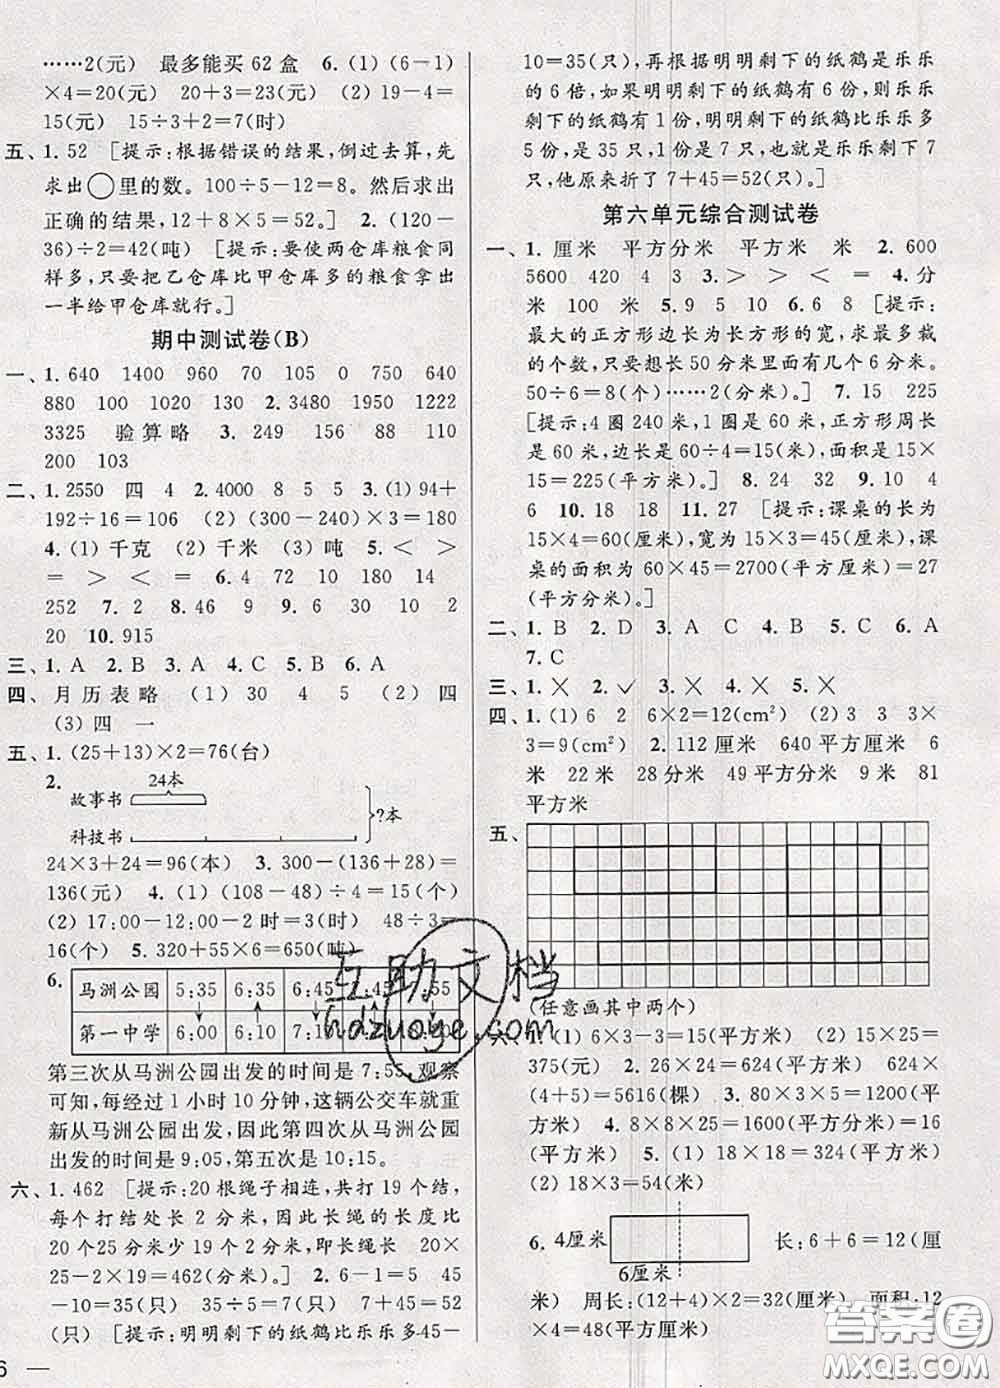 ……2(元)　最多能买 62 盒　6. (1) (6－1)
×4＝20(元)　20＋3＝23(元)　(2) 19－4＝
15(元)　15÷3＋2＝7(时)
五、1. 52　[提示:根据错误的结果,倒过去算,先
求出○里的数。100÷5－12＝8。然后求出
正确的结果,12＋8×5＝52。]　2. (120－
36)÷2＝42(吨)　[提示:要使两仓库粮食同
样多,只要把乙仓库比甲仓库多的粮食拿出
一半给甲仓库就行。]
期中测试卷(B)
一、1. 640　1400　960　70　105　0　750　640
880　100　1020　130　2. 3480　1950　1222
3325　验算略　3. 249　156　88　110
200　103
二、1. 2550　四　4　2. 4000　8　5　5　3. (1) 94＋
192÷16＝106　(2) (300－240)×3＝180
4. (1) 千克　(2) 千米　(3) 吨　5. ＜　＞
＝　＞　＜　＝　6. 4　72　10　180　14
252　7. 2　8. 46　9　9. 6　30　10　2
20　10. 915
三、1. A　2. B　3. A　4. C　5. B　6. A
四、月历表略　(1) 30　4　5　(2) 四
(3) 四　一
五、1. (25＋13)×2＝76(台)
2.
24本
故事书
?本
科技书
24×3＋24＝96(本)　3. 300－(136＋28)＝
136(元)　4. (1) (108－48)÷4＝15(个)
(2) 17:00－12:00－2＝3(时)　48÷3＝
16(个)　5. 320＋55×6＝650(吨)
6. 马洲公园　5:35　6:35　6:45　7:45　7:55
第一中学　6:00　6:10　7:10
第三次从马洲公园出发的时间是 7:55,观察
可知,每经过 1 小时 10 分钟,这辆公交车就重
新从马洲公园出发,因此第四次从马洲公园
出发的时间是 9:05,第五次是 10:15。
六、1. 462　[提示:20 根绳子相连,共打 19 个结,
每个打结处长 2 分米,因此长绳的长度比
20 个25 分米少 19 个2 分米,即长绳长　20×
25－2×19＝462(分米)。]　2. 6－1＝5　45
－10＝35(只)　35÷5＝7(只)　7＋45＝52
(只)　[提示:明明剩下的纸鹤比乐乐多45－
6
10＝35(只),再根据明明剩下的纸鹤是乐乐
的 6 倍,如果明明剩下的纸鹤有 6 份,则乐乐
剩下的纸鹤有 1 份,明明剩下的纸鹤比乐乐多
5 份,是 35 只,1 份是 7 只,也就是乐乐剩下 7
只,他原来折了 7＋45＝52(只)。]
第六单元综合测试卷
一、1. 厘米　平方分米　平方米　米　2. 600
5600　420　4　3　3. ＞　＞　＜　＝　4. 分
米　100　米　5. 9　5　10　6. 6　8　[提示:
最大的正方形边长为长方形的宽,求最多裁
的个数,只要想长 50 分米里面有几个 6 分米。
50÷6＝8(个)……2(分米)。]　7. 15　225
[提示:4 圈 240 米,1 圈是 60 米,正方形周长
是 60 米,边长是 60÷4＝15(米),面积是 15×
15＝225(平方米)。]　8. 24　32　9. 10　4
6　10. 18　18　11. 27　[提示:课桌的长为
15×4＝60(厘米),宽为 15×3＝45(厘米),课
桌的面积为 60×45＝2700(平方厘米)＝27
(平方分米)。]
二、1. B　2. D　3. A　C　4. B　5. C　6. A
7. C
三、1. ✕　2. ✓　3. ✕　4. ✕　5. ✕
四、1. (1) 6　2　6×2＝12(cm²)　(2) 3　3　3×
3＝9(cm²)　2. 112 厘米　640 平方厘米　6
米　22 米　28 分米　49 平方分米　9 米　81
平方米
五、
(任意画其中两个)
六、1. (1) 6×3＝18(平方米)　(2) 15×25＝
375(元)　2. 24×26＝624(平方米)　624×
(4＋5)＝5616(棵)　3. 80×10＝800(平方
米)　4. 8×8×25＝1600(平方分米)＝16
(平方米)　5. (1) 18×18＝324(平方米)
(2) 18×3＝54(米)
6. 4厘米　长:6＋6＝12(厘
6厘米
米)　周长:(12＋4)×2＝32(厘米)　面积:12
×4＝48(平方厘米)
互助文档
hdzuoye.com
答案圈
MXQE.COM